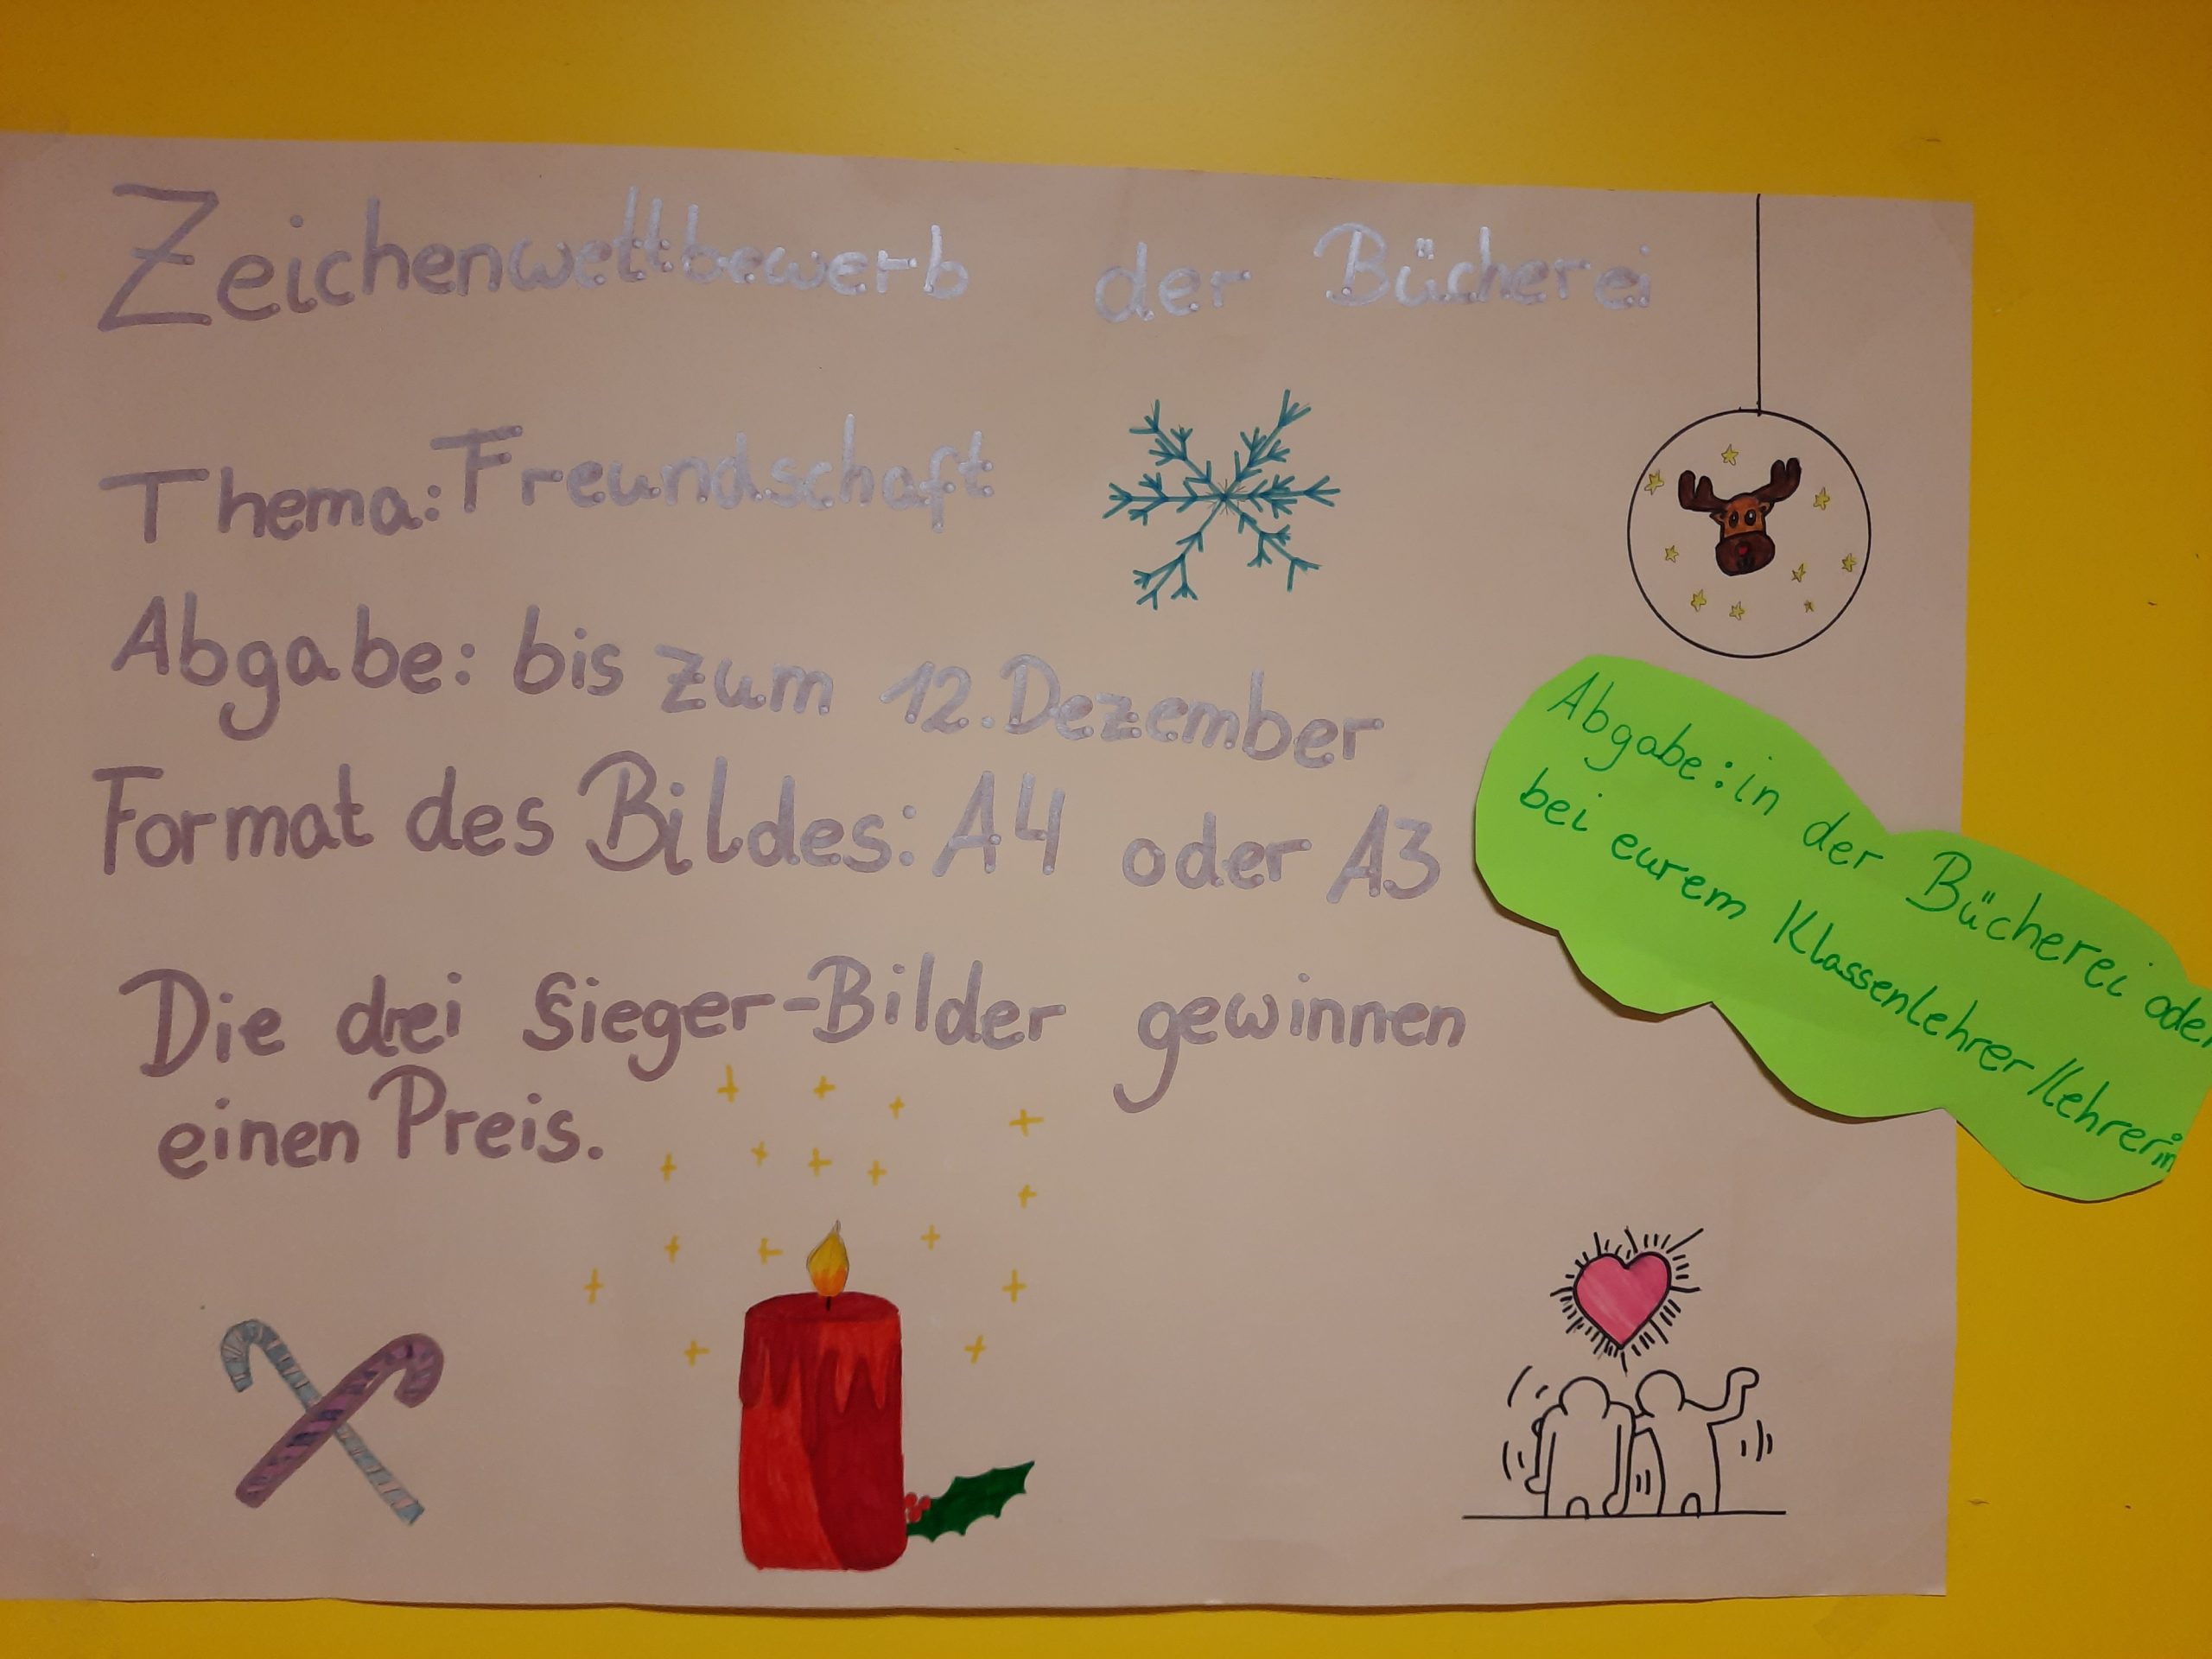 Zeichenwettbewerb der Bücherei
Thema: Freundschaft
Abgabe: bis zum 12. Dezember
Format des Bildes: A4 oder A3
Die drei Sieger-Bilder gewinnen
einen Preis.
Abgabe: in der Bücherei oder
bei eurem Klassenlehrer/lehrerin